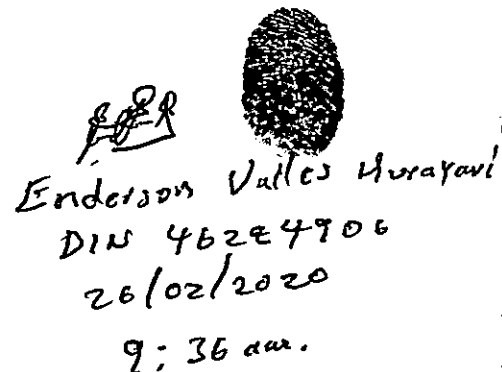 Enderson Valles Murayari
DIN
26/02/2020
9:36 am.